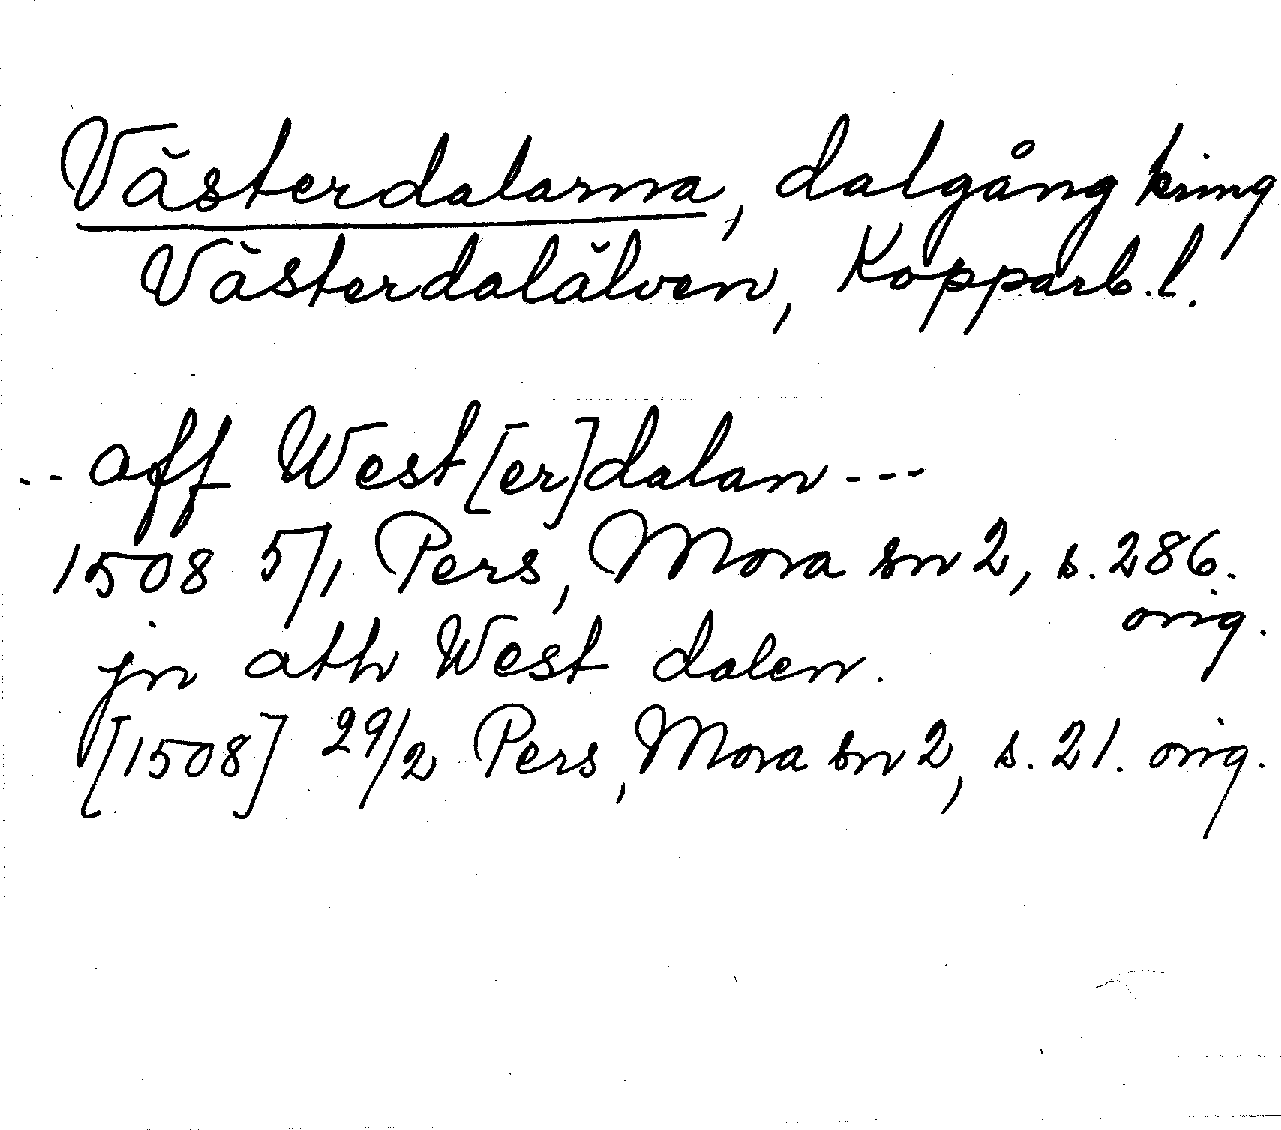 Västerdalarna, dalgång kring
Västerdalälven, Kopparb.l.
-- aff West[er]dalan ---
1508 5/1 Pers, Mora sn 2, s. 286.
orig.
jn ath West dalen.
[1508] 29/2 Pers, Mora sn 2, s. 21. orig.